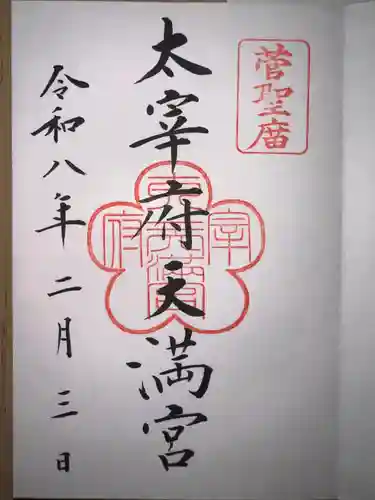 菅聖庿
太宰府天満宮
令和八年二月三日